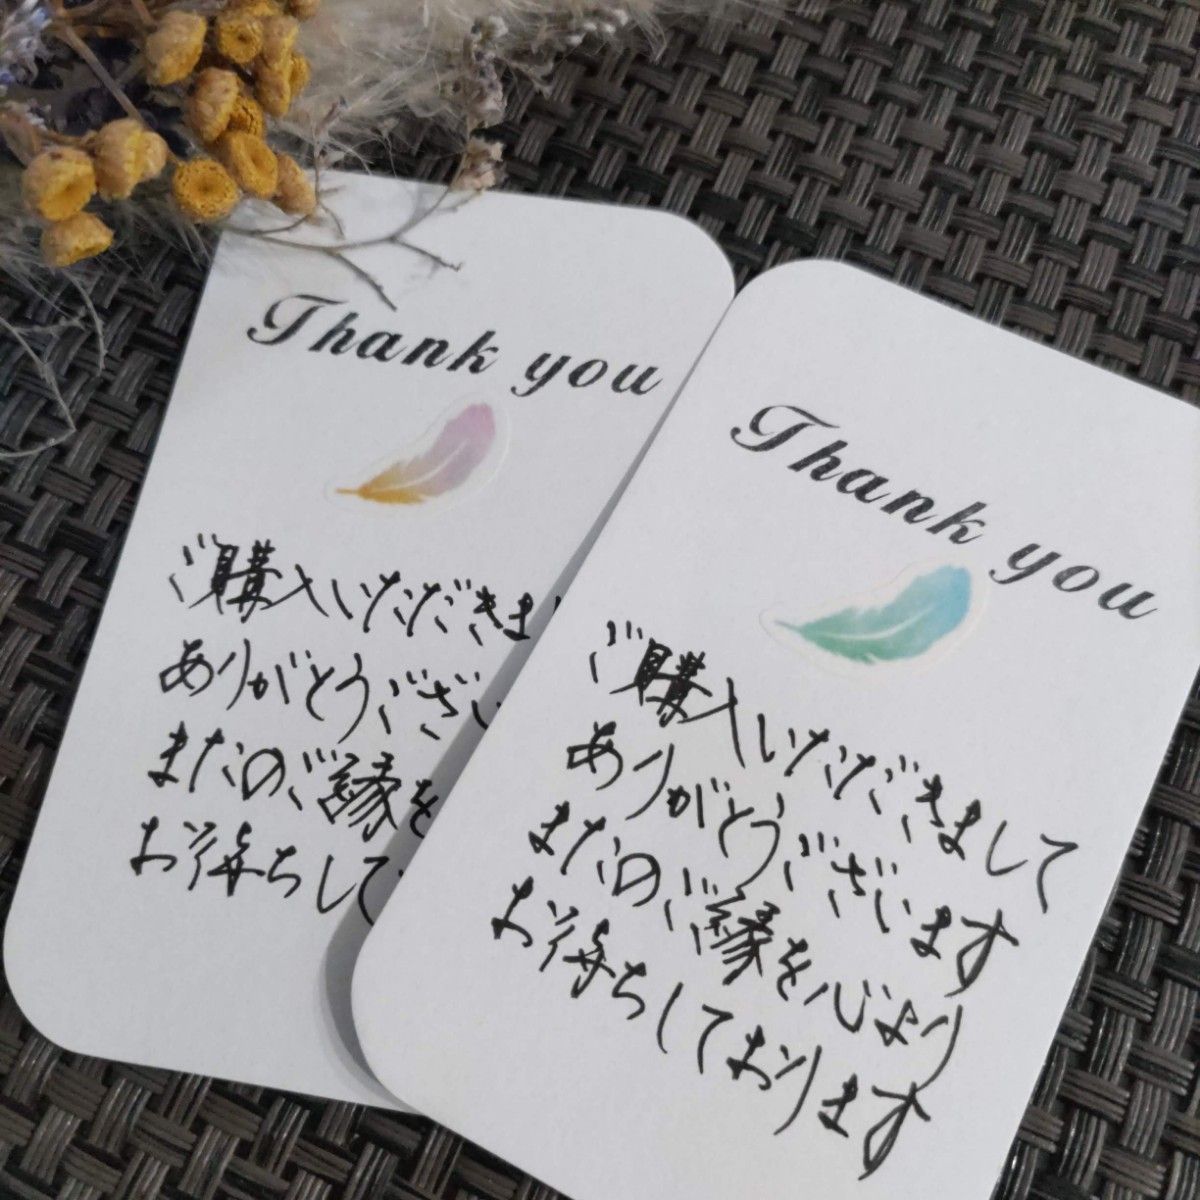 Thank you
ご購入いただきま
ありがとうござい
またのご縁を
お待ちして
Thank you
ご購入いただきまして
ありがとうございます
またのご縁を心より
お待ちしております